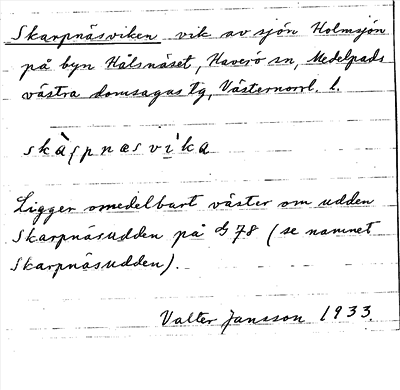 Skarpnäsviken vik av sjön Holmsjön
på byn Hålsnäset, Haverö sn, Medelpads
västra domsagas tg, Västernorrl. l.
skàʃpnæsvika
Ligger omedelbart väster om udden
Skarpnäsudden på G 78 (se namnet
Skarpnäsudden).
Valter Jansson 1933.